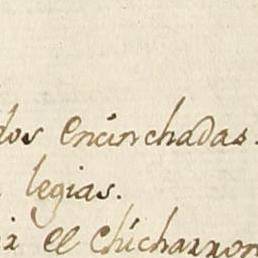 dos encinchadas.
legias.
el chicharron